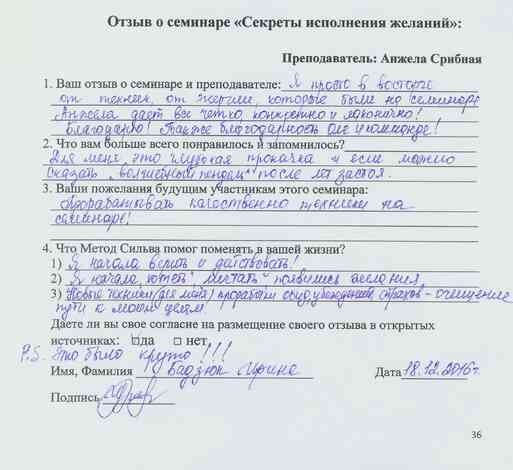 Отзыв о семинаре «Секреты исполнения желаний»:
Преподаватель: Анжела Срибная
1. Ваш отзыв о семинаре и преподавателе: Я просто в восторге
от техник, от энергии, которые были на семинаре
Анжела дает все четко, конкретно и лаконично!
Благодарю! Также благодарность Оле и команде!
2. Что вам больше всего понравилось и запомнилось?
Для меня, это глубокая прокачка и если можно
сказать „волшебный пендель" после лет застоя.
3. Ваши пожелания будущим участникам этого семинара:
прорабатывать качественно техники на
семинаре!
4. Что Метод Сильва помог поменять в вашей жизни?
1) Я начала верить и действовать!
2) Я начала хотеть, мечтать появились желания
3) Новые техники (для меня) проработки обид, убеждений, страхов - очищение
пути к моим целям!
Даете ли вы свое согласие на размещение своего отзыва в открытых
источниках: да нет
P.S. Это было круто!!!
Имя, Фамилия Бадзюк Ирина Дата 18.12.2016г.
Подпись
36